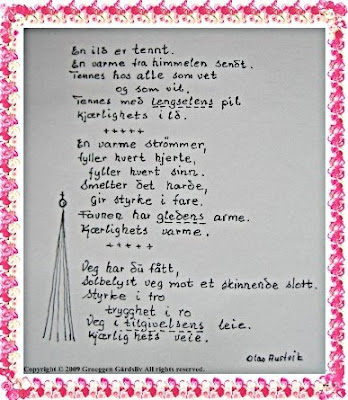 En ild er tennt.
En varme fra himmelen sendt.
Tennes hos alle som vet
og som vil.
Tennes med lengselens pil
Kjærlighets ild.
+++++
En varme strömmer,
fyller hvert hjerte,
fyller hvert sinn.
Smelter det harde,
Gir styrke i fare.
Favner har gledens arme.
Kjærlighets varme.
+++++
Veg har du fått,
Solbelyst veg mot et skinnende slott.
Styrke i tro
trygghet i ro
Veg i tilgivelsens leie.
Kjærlighets veie.
Olav Austvik
Copyright © 2009 Groeggen Gårdsliv All rights reserved.